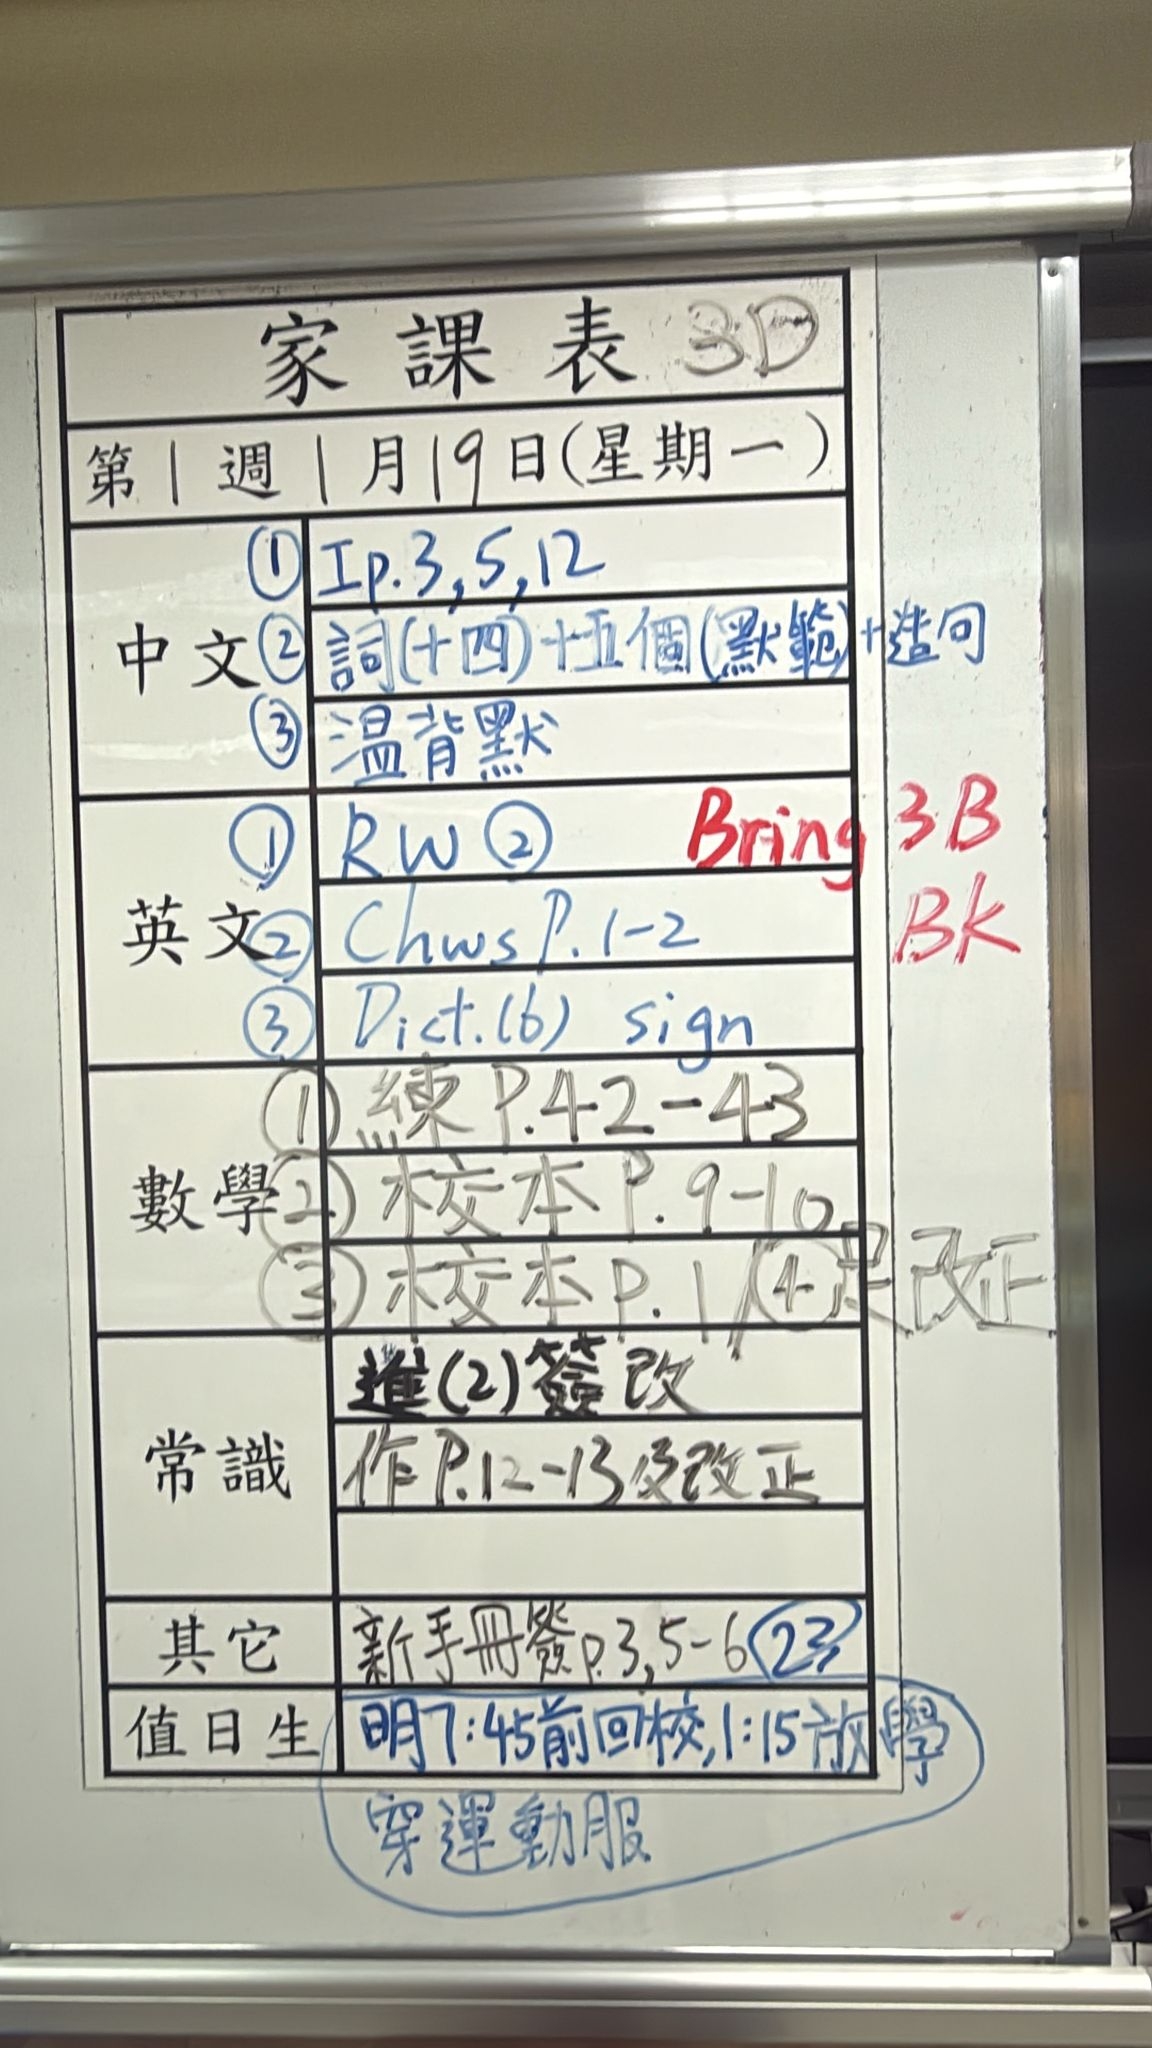 家課表 3D
第1週1月19日(星期一)
中文
① Ip.3,5,12
② 詞(十四)十五個(默範)+造句
③ 溫背默
英文
① RW② Bring 3B
BK
② Chws P.1-2
③ Dict.(6) sign
數學
① 練P.42-43
② 校本P.9-10
③ 校本P.1 改正
常識
進(2)簽改
作P.12-13及改正
其它
新手冊簽p.3,5-6 23
值日生
明7:45前回校,1:15放學
穿運動服